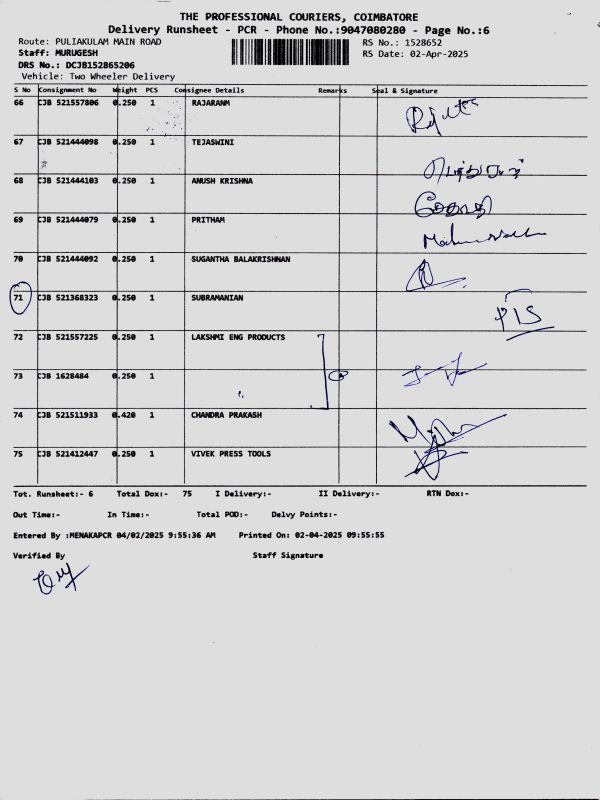 THE PROFESSIONAL COURIERS, COIMBATORE
Delivery Runsheet - PCR - Phone No.:9047080280 - Page No.:6
Route: PULIAKULAM MAIN ROAD RS No.: 1528652
Staff: MURUGESH RS Date: 02-Apr-2025
DRS No.: DCJB152865206
Vehicle: Two Wheeler Delivery
S No Consignment No Weight PCS Consignee Details Remarks Seal & Signature
66 CJB 521557806 0.250 1 RAJARANM
67 CJB 521444098 0.250 1 TEJASWINI
68 CJB 521444103 0.250 1 ANUSH KRISHNA
69 CJB 521444079 0.250 1 PRITHAM
70 CJB 521444092 0.250 1 SUGANTHA BALAKRISHNAN
71 CJB 521368323 0.250 1 SUBRAMANIAN
72 CJB 521557225 0.250 1 LAKSHMI ENG PRODUCTS
73 CJB 1628484 0.250 1
74 CJB 521511933 0.420 1 CHANDRA PRAKASH
75 CJB 521412447 0.250 1 VIVEK PRESS TOOLS
Tot. Runsheet:- 6 Total Dox:- 75 I Delivery:- II Delivery:- RTN Dox:-
Out Time:- In Time:- Total POD:- Delvy Points:-
Entered By :MENAKAPCR 04/02/2025 9:55:36 AM Printed On: 02-04-2025 09:55:55
Verified By Staff Signature